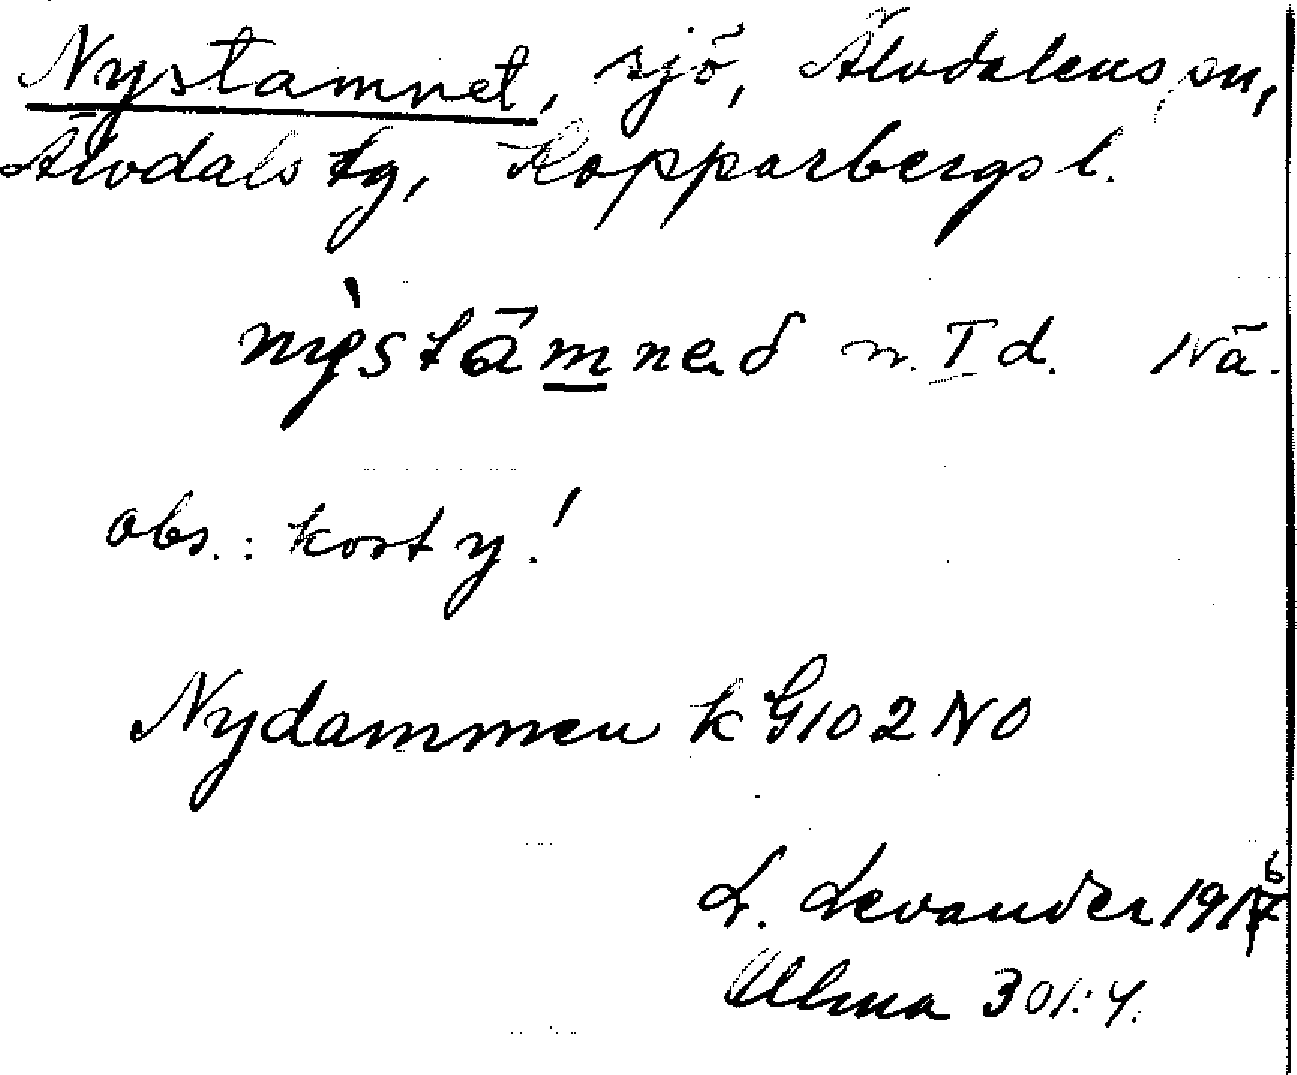 Nystamnet, sjö, Älvdalens sn,
Älvdals tg, Kopparbergs l.
nỳstāmned n. I d. Nä.
obs.: kort y!
Nydammen k G102NO
L. Levander 1916
Ulma 301:4.